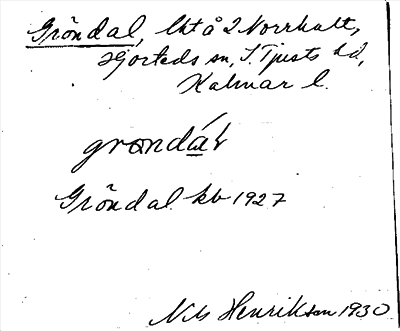 Gröndal, lht å 2 Norrhult,
Hjorteds sn, S. Tjusts hd,
Kalmar l.
grøndá̲ḷ
Gröndal kb 1927
Nils Henriksson 1930